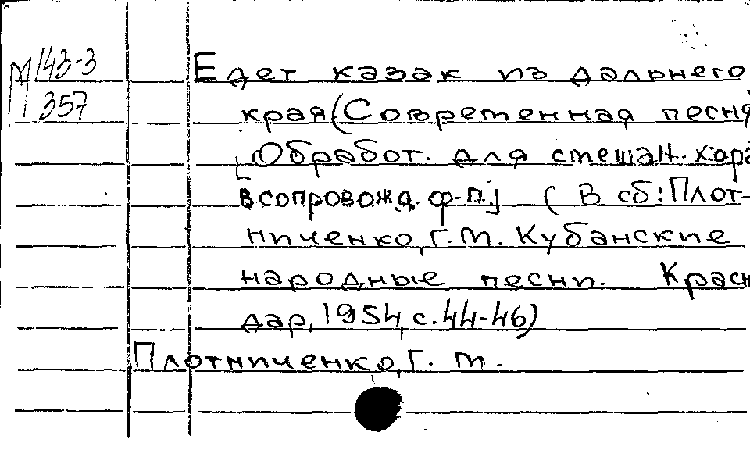 М 143-3
357
Едет казак из дальнего
края (Современная песня)
[Обработ. для смешан. хора
в сопровожд. ф-п.] ( В сб: Плот-
ниченко, Г. М. Кубанские
народные песни. Красн
дар, 1954, с. 44-46)
Плотниченко, Г. М.